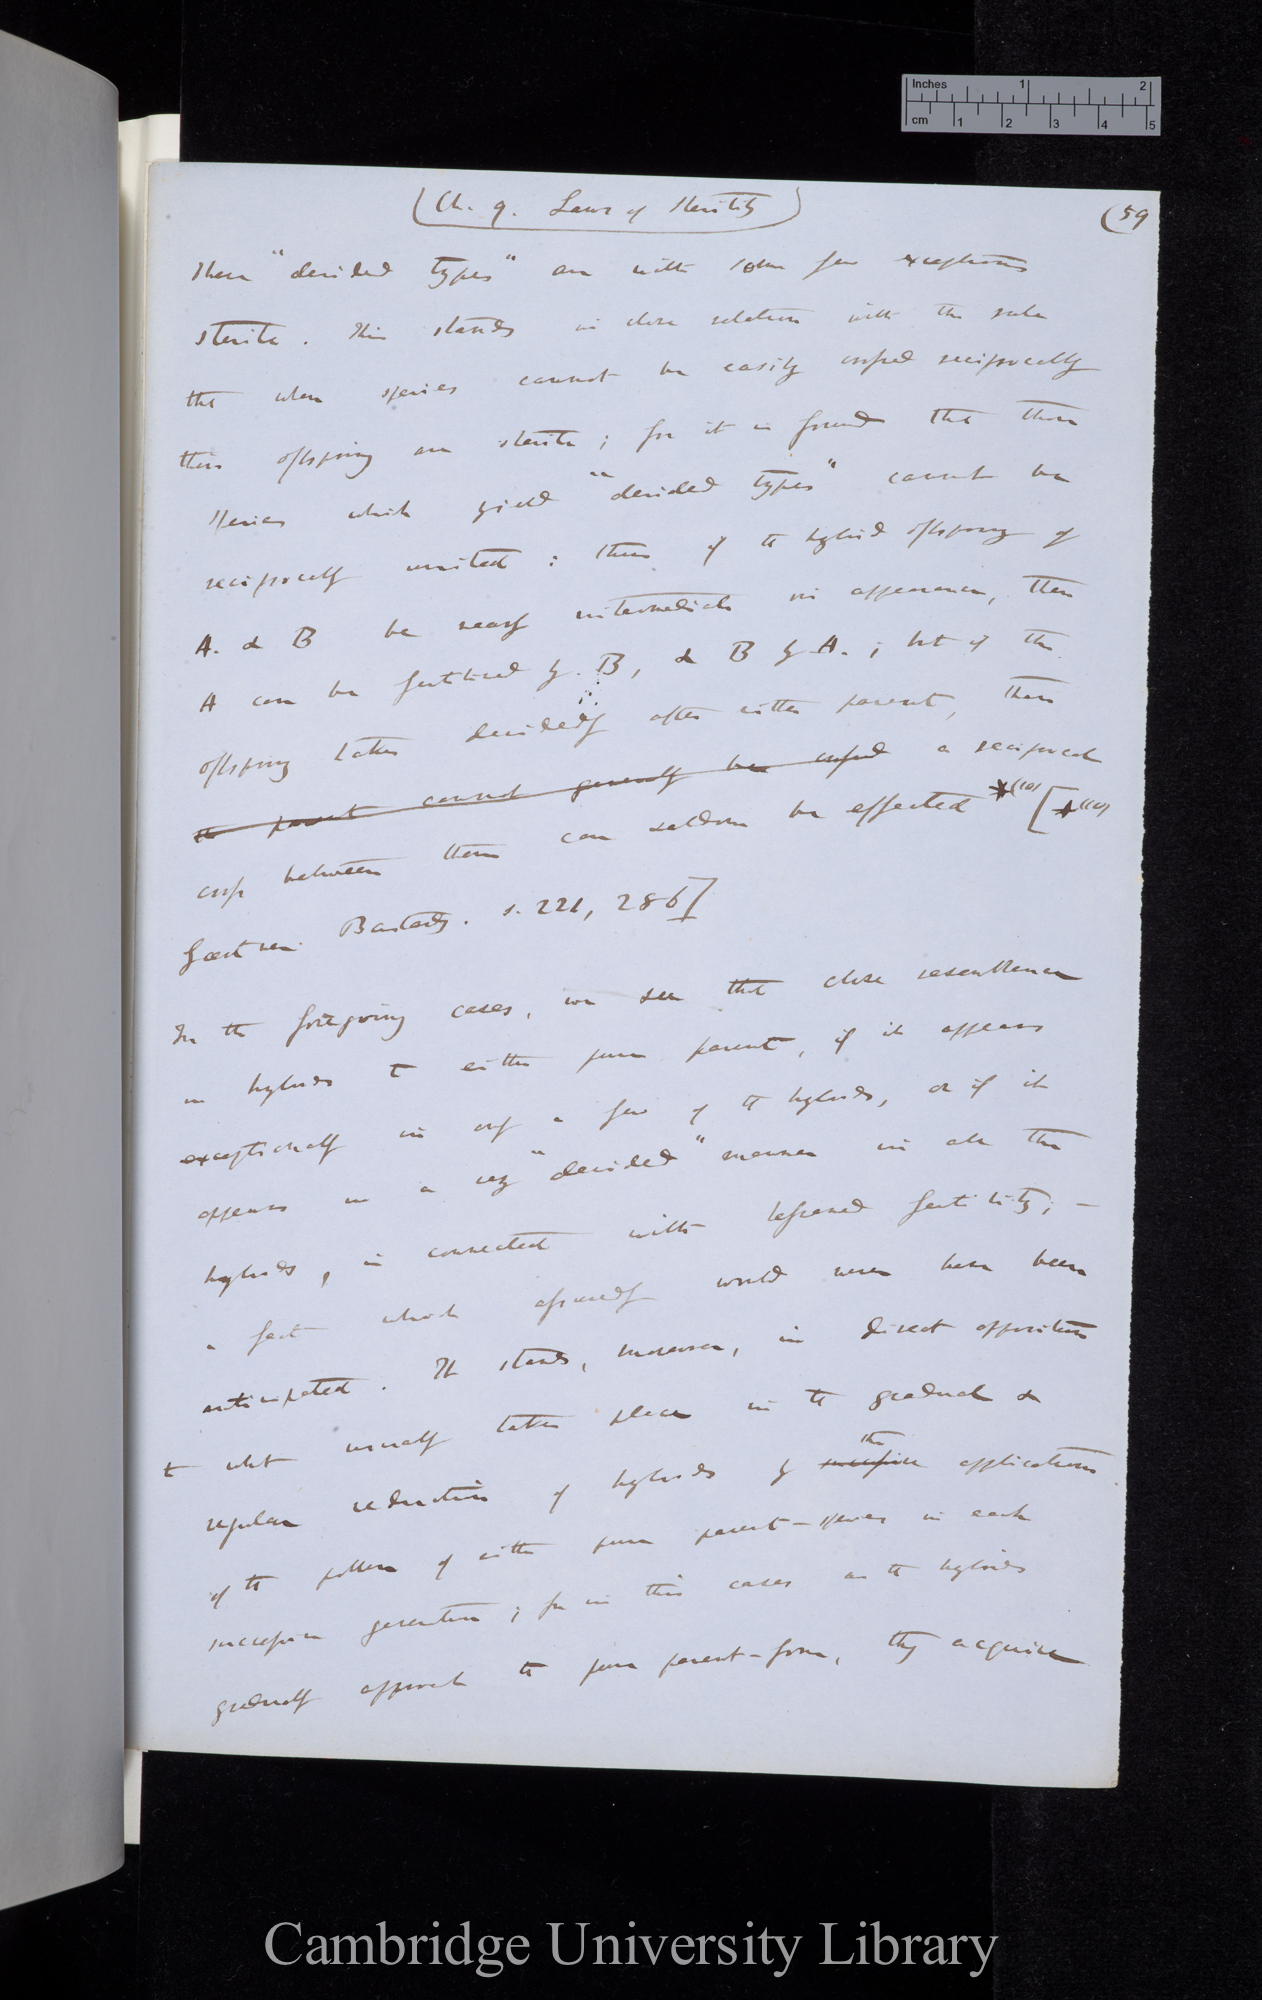 Inches 1 2
cm 1 2 3 4 5
(Ch. 9. Laws of Sterility) (59
These "decided types" are with some few exceptions
sterile. This stands in close relation with the rule
that when species cannot be easily crossed reciprocally
their offspring are sterile; for it is found that those
species which yield "decided types" cannot be
reciprocally united: thus if the hybrid offspring of
A. & B be nearly intermediate in appearance, then
A can be fertilised by B, & B by A.; but if the
offspring takes decidedly after either parent, then
the parent cannot generally be crossed a reciprocal
cross between them can seldom be effected *(10) [*(10)
Gærtner Bastardz. s. 221, 286]
In the foregoing cases, we see that close resemblance
in hybrids to either pure parent, if it appears
exceptionally in only a few of the hybrids, or if it
appears in a very "decided" manner in all the
hybrids, is connected with lessened fertility; —
a fact which assuredly would never have been
anticipated. It stands, moreover, in direct opposition
to what usually takes place in the gradual &
regular reduction of hybrids by successive the applications
of the pollen of either pure parent-species in each
successive generation; for in this cases as the hybrids
gradually approach the pure parent-form, they acquire
Cambridge University Library